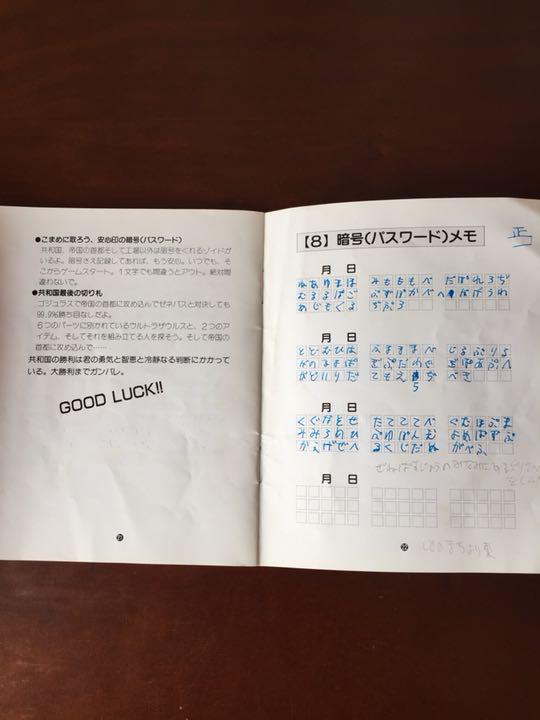 ●こまめに取ろう、安心印の暗号(パスワード)
共和国、帝国の首都そして工場以外は暗号をくれるゾイドが
いるよ。暗号さえ記録してあれば、もう安心。いつでも、そ
こからゲームスタート。1文字でも間違うとアウト。絶対間
違わないで。
●共和国最後の切り札
ゴジュラスで帝国の首都に攻め込んでゼネバスと対決しても
99.9%勝ち目なしだよ。
6つのパーツに別かれているウルトラザウルスと、2つのアイ
テム、そしてそれを組み立てる人を探そう。そして帝国の
首都に攻め込んで……
共和国の勝利は君の勇気と智恵と冷静なる判断にかかって
いる。大勝利までガンバレ。
GOOD LUCK!!
21
【8】暗号(パスワード)メモ
正
月 日
みもももべ だばれろぢ
むるるばご
めじもぐる ちぷろ
月 日
どどむひは へままま
がのままば
がどいりだ てもえ べき
月 日
くぐなとせ たてててべ ぐむほぶま
みみろあひ べゆぱんえ よめぱずぶ
かえげぜへ るくじだぬ がべふ
月 日
22